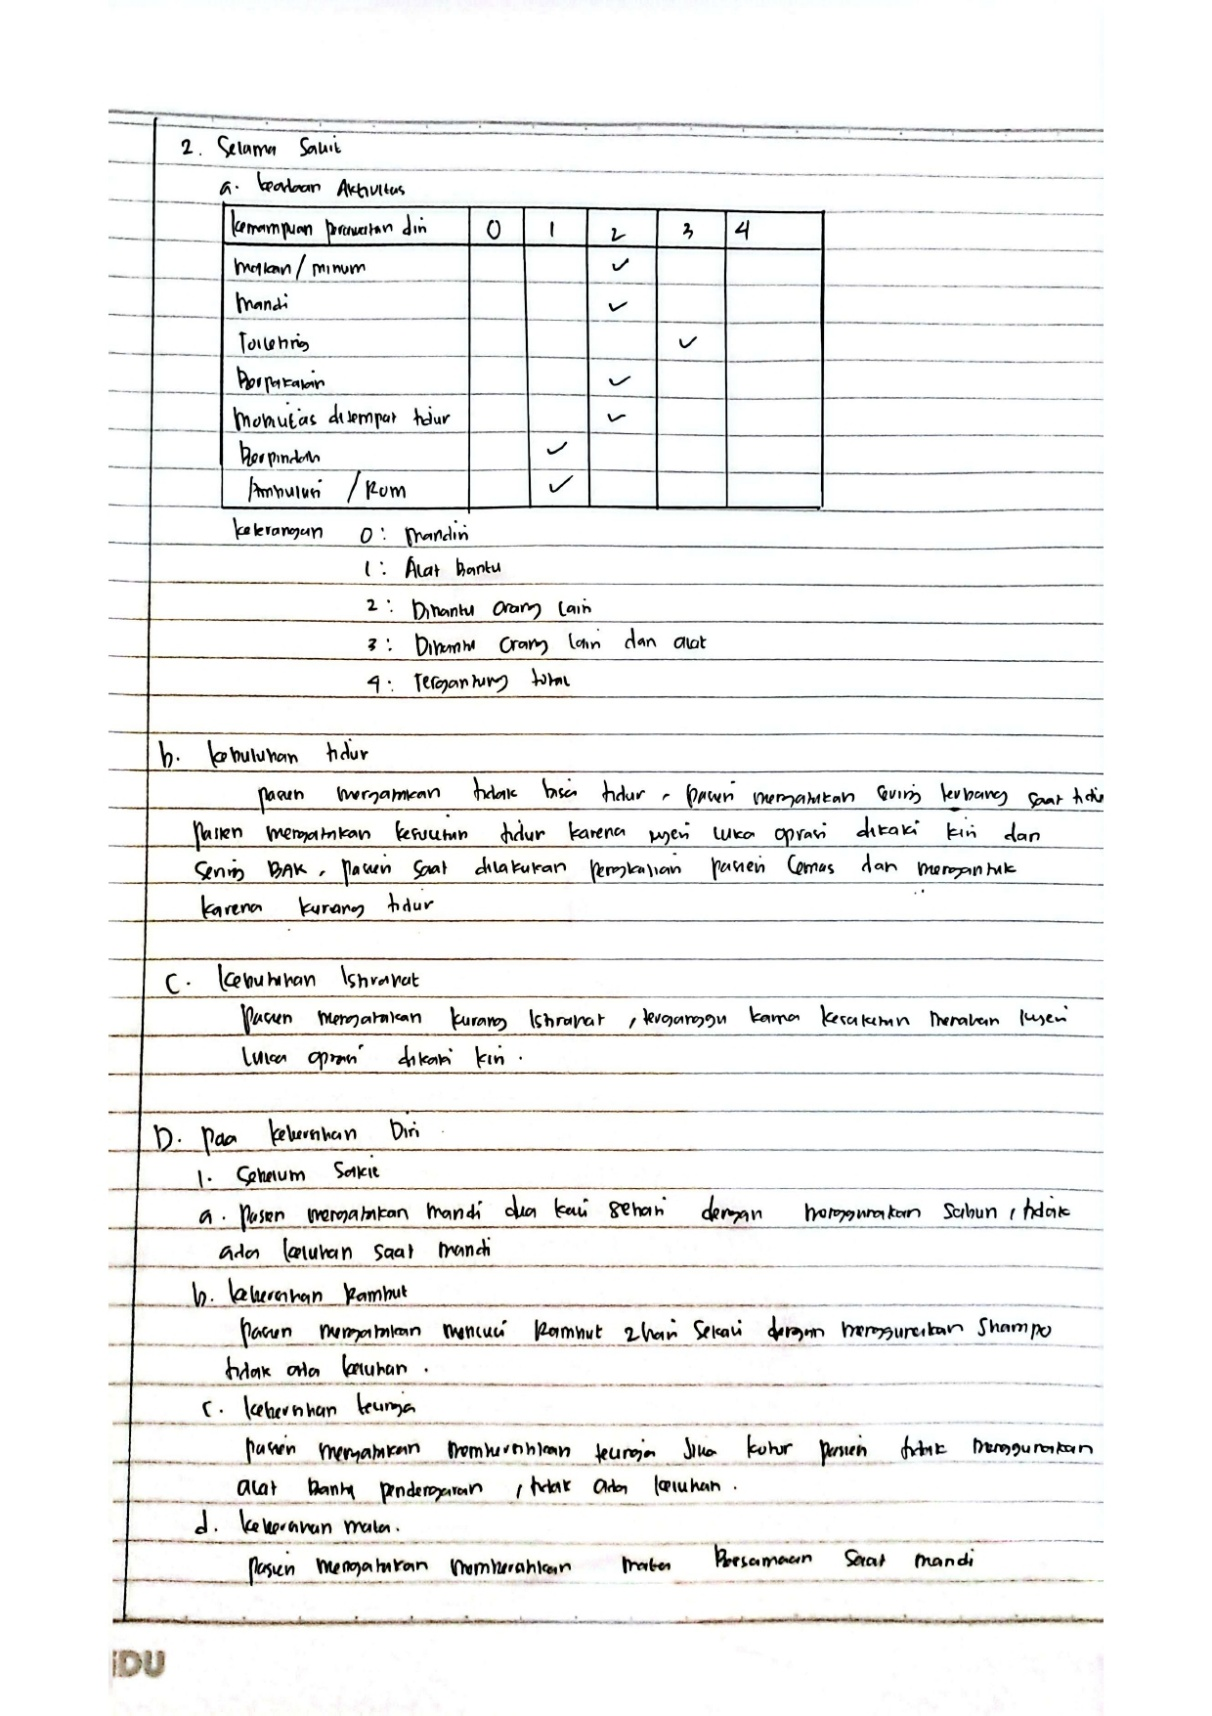 2. Selama Sakit
a. keadaan Aktivitas
kemampuan perawatan diri 0 1 2 3 4
makan / minum ✓
mandi ✓
Toileting ✓
Berpakaian ✓
Mobilitas ditempat tidur ✓
Berpindah ✓
Ambulasi / Rom ✓
keterangan 0 : mandiri
1 : Alat bantu
2 : Dibantu orang lain
3 : Dibantu orang lain dan alat
4 : Tergantung total
b. kebutuhan tidur
pasien mengatakan tidak bisa tidur, pasien mengatakan sering terbangun saat tidur
pasien mengatakan kesulitan tidur karena nyeri luka oprasi dikaki kiri dan
sering BAK, pasien saat dilakukan pengkajian pasien cemas dan mengantuk
karena kurang tidur
C. kebutuhan Istirahat
pasien mengatakan kurang istirahat, terganggu karna kesakitan menahan nyeri
luka oprasi dikaki kiri.
D. pola kebersihan Diri
1. Sebelum Sakit
a. Pasien mengatakan mandi dua kali sehari dengan menggunakan sabun, tidak
ada keluhan saat mandi
b. kebersihan Rambut
pasien mengatakan mencuci Rambut 2 hari sekali dengan menggunakan shampo
tidak ada keluhan.
c. kebersihan telinga
pasien mengatakan membersihkan telinga Jika kotor pasien tidak menggunakan
alat bantu pendengaran, tidak ada keluhan.
d. kebersihan mata.
pasien mengatakan membersihkan mata Bersamaan saat mandi
iDU